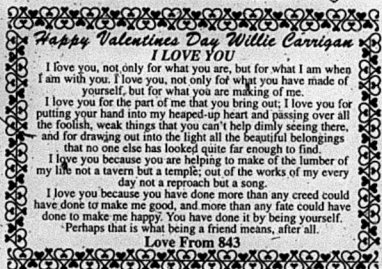 Happy Valentines Day Willie Carrigan
I LOVE YOU
I love you, not only for what you are, but for what I am when
I am with you. I love you, not only for what you have made of
yourself, but for what you are making of me.
I love you for the part of me that you bring out; I love you for
putting your hand into my heaped-up heart and passing over all
the foolish, weak things that you can't help dimly seeing there,
and for drawing out into the light all the beautiful belongings
that no one else has looked quite far enough to find.
I love you because you are helping to make of the lumber of
my life not a tavern but a temple; out of the works of my every
day not a reproach but a song.
I love you because you have done more than any creed could
have done to make me good, and more than any fate could have
done to make me happy. You have done it by being yourself.
Perhaps that is what being a friend means, after all.
Love From 843